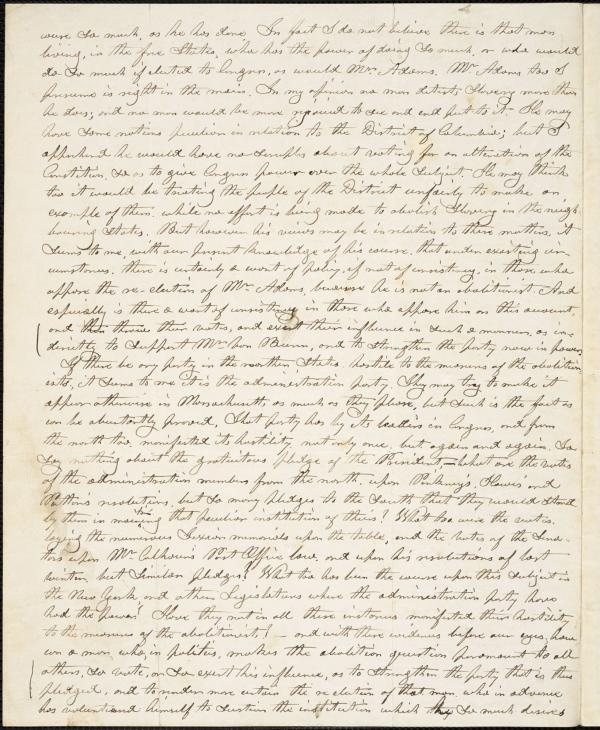 were so much, as he has done. In fact I do not believe there is that man
living, in the free States, who has the power of doing so much, or who would
do so much if elected to Congress, as would Mr. Adams. Mr. Adams too I
presume is right in the main. In my opinion no man detests Slavery more than
he does, and no man would be more rejoiced to see an end put to it. He may
have some notions peculiar in relation to the District of Columbia; but I
apprehend he would have no scruples about voting for an alteration of the
Constitution, so as to give Congress power over the whole subject. He may think
too it would be treating the people of the District unfairly to make an
example of them, while no effort is being made to abolish Slavery in the neigh
bouring States. But however his views may be in relation to these matters, it
seems to me, with our present knowledge of his course, that under existing cir
cumstances, there is certainly a want of policy, if not of consistency, in those who
oppose the re-election of Mr. Adams, because he is not an abolitionist. And
especially is there a want of consistency in those who oppose him on this account,
and then throw their votes, and exert their influence in such a manner, as in
directly to support Mr. Van Buren, and to strengthen the party now in power.
If there be any party in the northern States, hostile to the measures of the abolition
ists, it seems to me it is the administration party. They may try to make it
appear otherwise in Massachusetts, as much as they please, but such is the fact as
can be abundantly proved. That party has by its leaders in Congress, and from
the north too, manifested its hostility, not only once, but again and again. To
say nothing about the gratuitous pledge of the President,— what are the votes
of the administration members from the north, upon Pinckney's, Hawes' and
Patton's resolutions, but so many pledges to the South that they would stand
by them in that peculiar institution of theirs! What too were the votes,
laying the numerous Texian memorials upon the table, and the votes of the Sena-
tors upon Mr. Calhoun's Post Office law, and upon his resolutions of last
winter, but similar pledges? What too has been the course upon this subject in
the New York and other Legislatures where the administration party have
had the power! Have they not in all these instances manifested their hostility
to the measures of the abolitionist! — and with these evidences before our eyes, how
can a man, who in politics, makes the abolition question paramount to all
others, so vote, or so exert his influence, as to strengthen the party that is thus
pledged, and to render more certain the re-election of that man, who in advance
has volunteered himself to sustain the institution which they so much desires